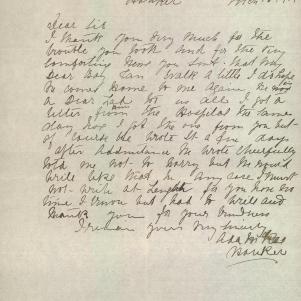 Dear Sir
I thank you very much for the
trouble you took and for the very
comforting news you sent that my
Dear Boy can walk a little I do hope
he comes home to me again he is
a Dear Lad to us all I got a
letter from the Hospital the same
day as I got the one from you but
of course he wrote it a few days
after admittance he wrote cheerfully
told me not to worry but he would
write like that in any case I must
not write at length for you have no
time I know but had to write and
thank you for your kindness
I remain yours sincerely
Ada